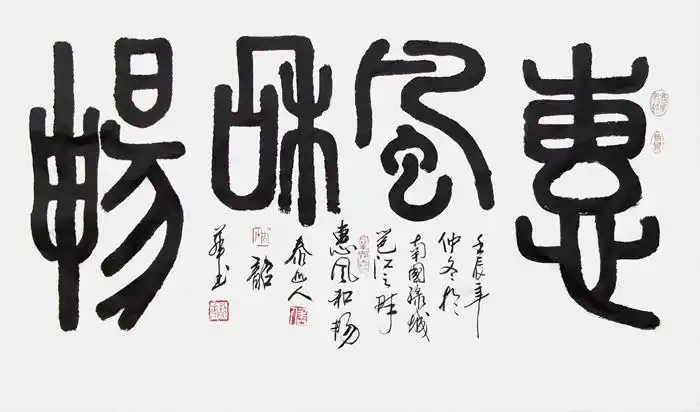 惠風和暢
壬辰年
仲冬於
南國綠城
邕江之畔
惠风和畅
泰山人
韶
華书